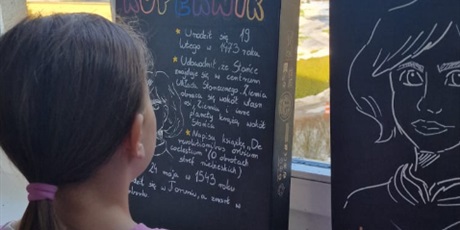 KOPERNIK
★ Urodził się 19
lutego w 1473 roku
★ Udowodnił, że Słońce
znajduje się w centrum
Układu Słonecznego, Ziemia
obraca się wokół własn
osi, Ziemia i inne
planety krążą wokół
Słońca
★ Napisał książkę „De
revolutionibus orbium
coelestium" (O obrotach
sfer niebieskich)
24 maja w 1543 roku
się w Toruniu, a zmarł w